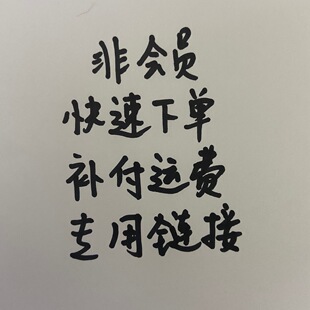 非会员
快速下单
补付运费
专用链接